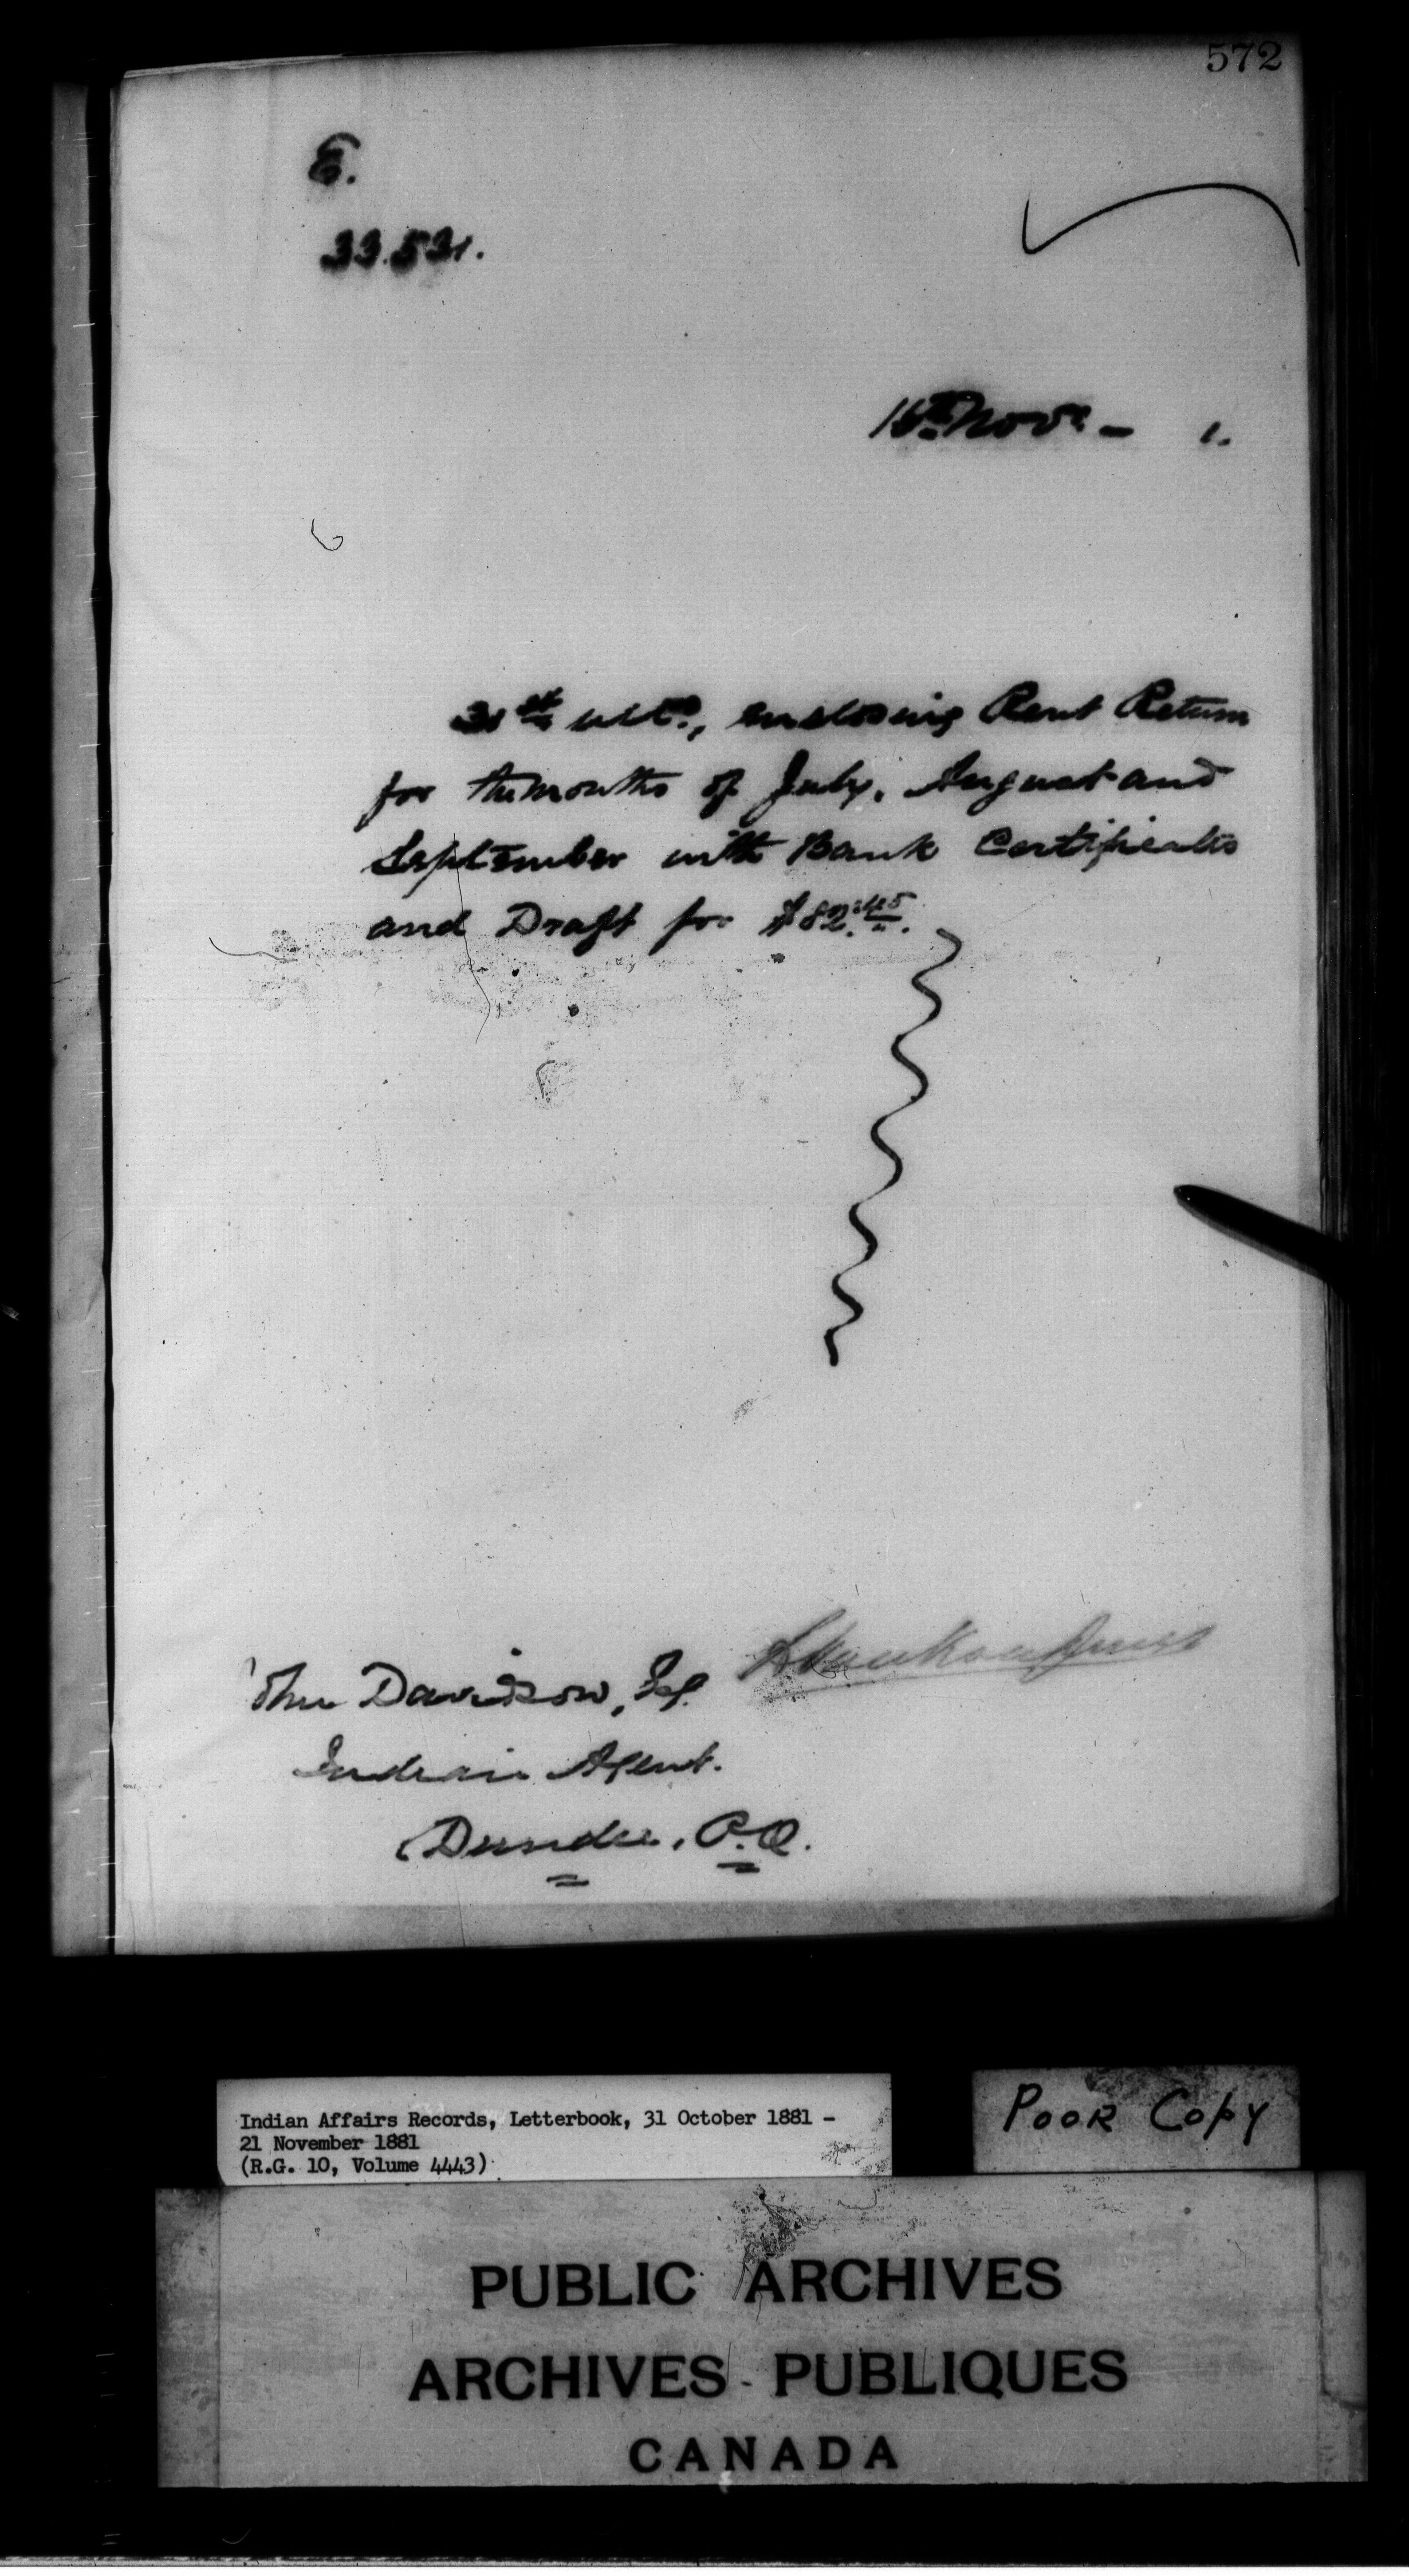 572
E.
33.531.
Nov. - 1.
31st ulto., enclosing Rent Return
for the months of July, August and
September with Bank Certificates
and Draft for $82.45.
John Davidson, Esq.
Indian Agent.
Dundee, P.Q.
Indian Affairs Records, Letterbook, 31 October 1881 -
21 November 1881
(R.G. 10, Volume 4443)
POOR COPY
PUBLIC ARCHIVES
ARCHIVES PUBLIQUES
CANADA